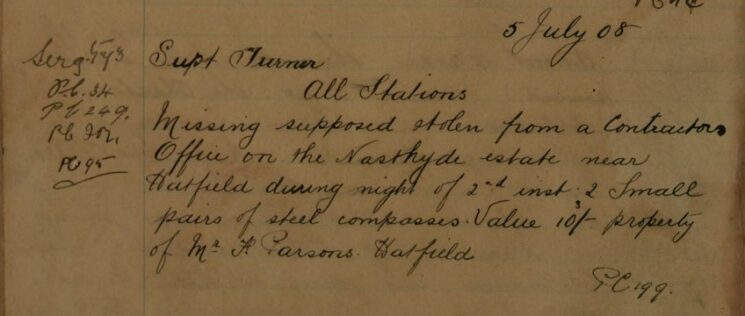 5 July 08
Supt Turner
All Stations
Missing supposed stolen from a Contractors
Office on the Nasthyde estate near
Hatfield during night of 2nd inst: 2 Small
pairs of steel compasses. Value 10/- property
of Mr F Parsons. Hatfield
PC 199.
Serg.
P.C. 34
PC 249.
PC
PC 95